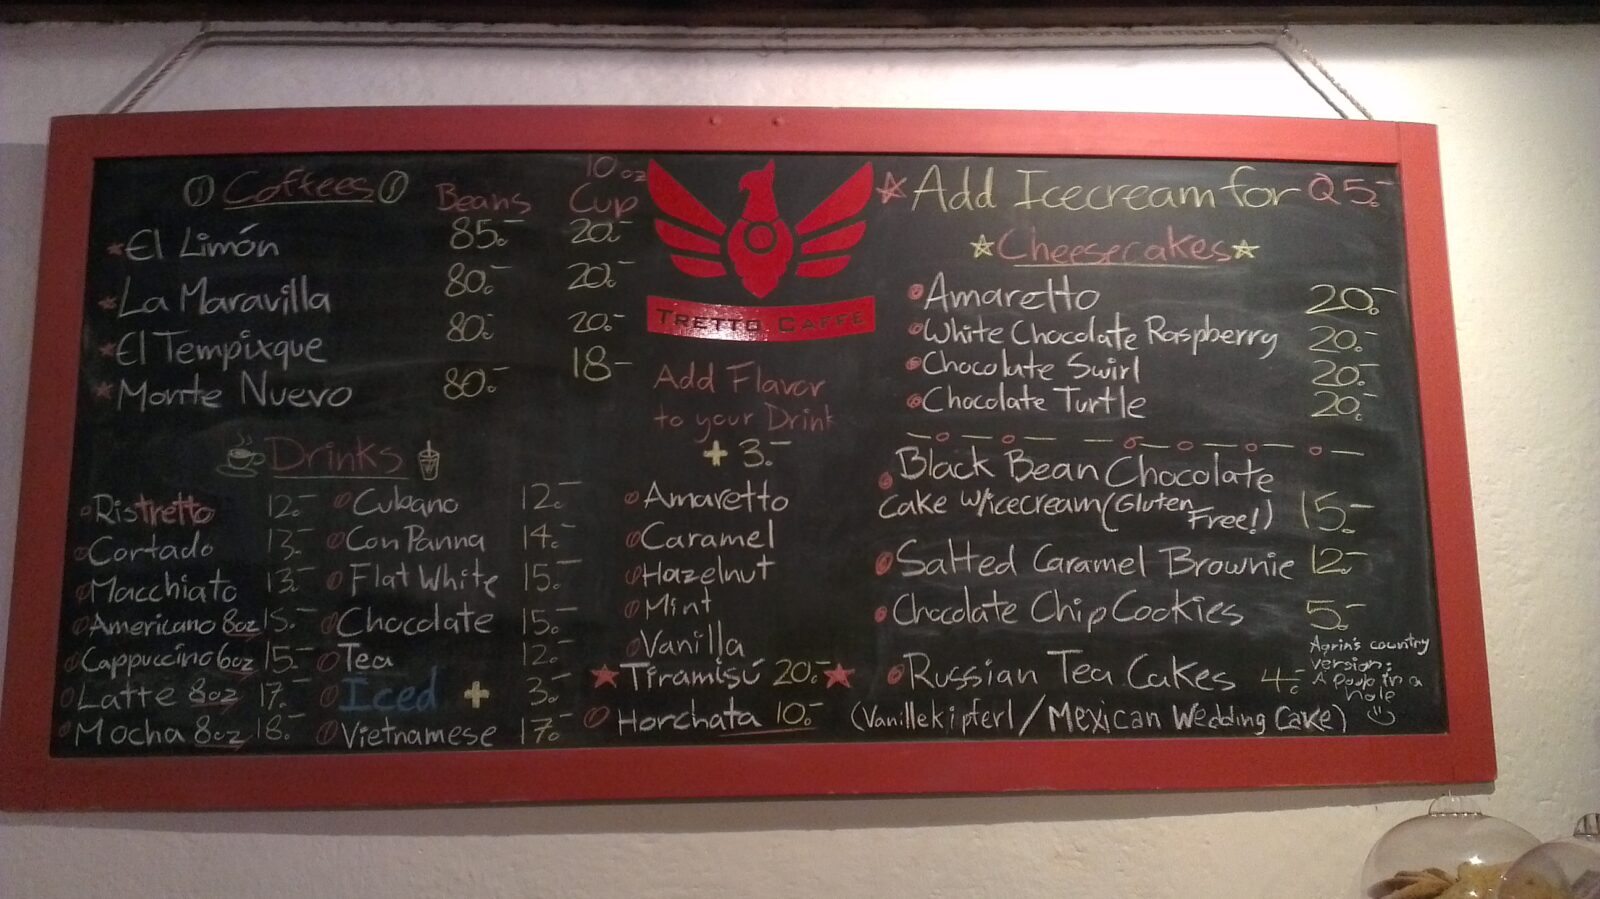 Coffees Beans 10oz Cup
El Limón 85.- 20.-
La Maravilla 80.- 20.-
El Tempixque 80.- 20.-
Monte Nuevo 80.- 18-
Drinks
Ristretto 12.-
Cortado 13.-
Macchiato 13.-
Americano 8oz 15.-
Cappuccino 6oz 15.-
Latte 8oz 17.-
Mocha 8oz 18.-
Cubano 12.-
Con Panna 14.-
Flat White 15.-
Chocolate 15.-
Tea 12.-
Iced + 3.-
Vietnamese 17.-
TRETTO CAFFE
Add Flavor
to your Drink
+ 3.-
Amaretto
Caramel
Hazelnut
Mint
Vanilla
Tiramisú 20.-
Horchata 10.-
Add Icecream for Q5.-
Cheesecakes
Amaretto 20.-
White Chocolate Raspberry 20.-
Chocolate Swirl 20.-
Chocolate Turtle 20.-
Black Bean Chocolate
Cake w/icecream (Gluten Free!) 15.-
Salted Caramel Brownie 12.-
Chocolate Chip Cookies 5.-
Russian Tea Cakes 4.-
(Vanillekipferl/Mexican Wedding Cake)
country
version:
in a
hole